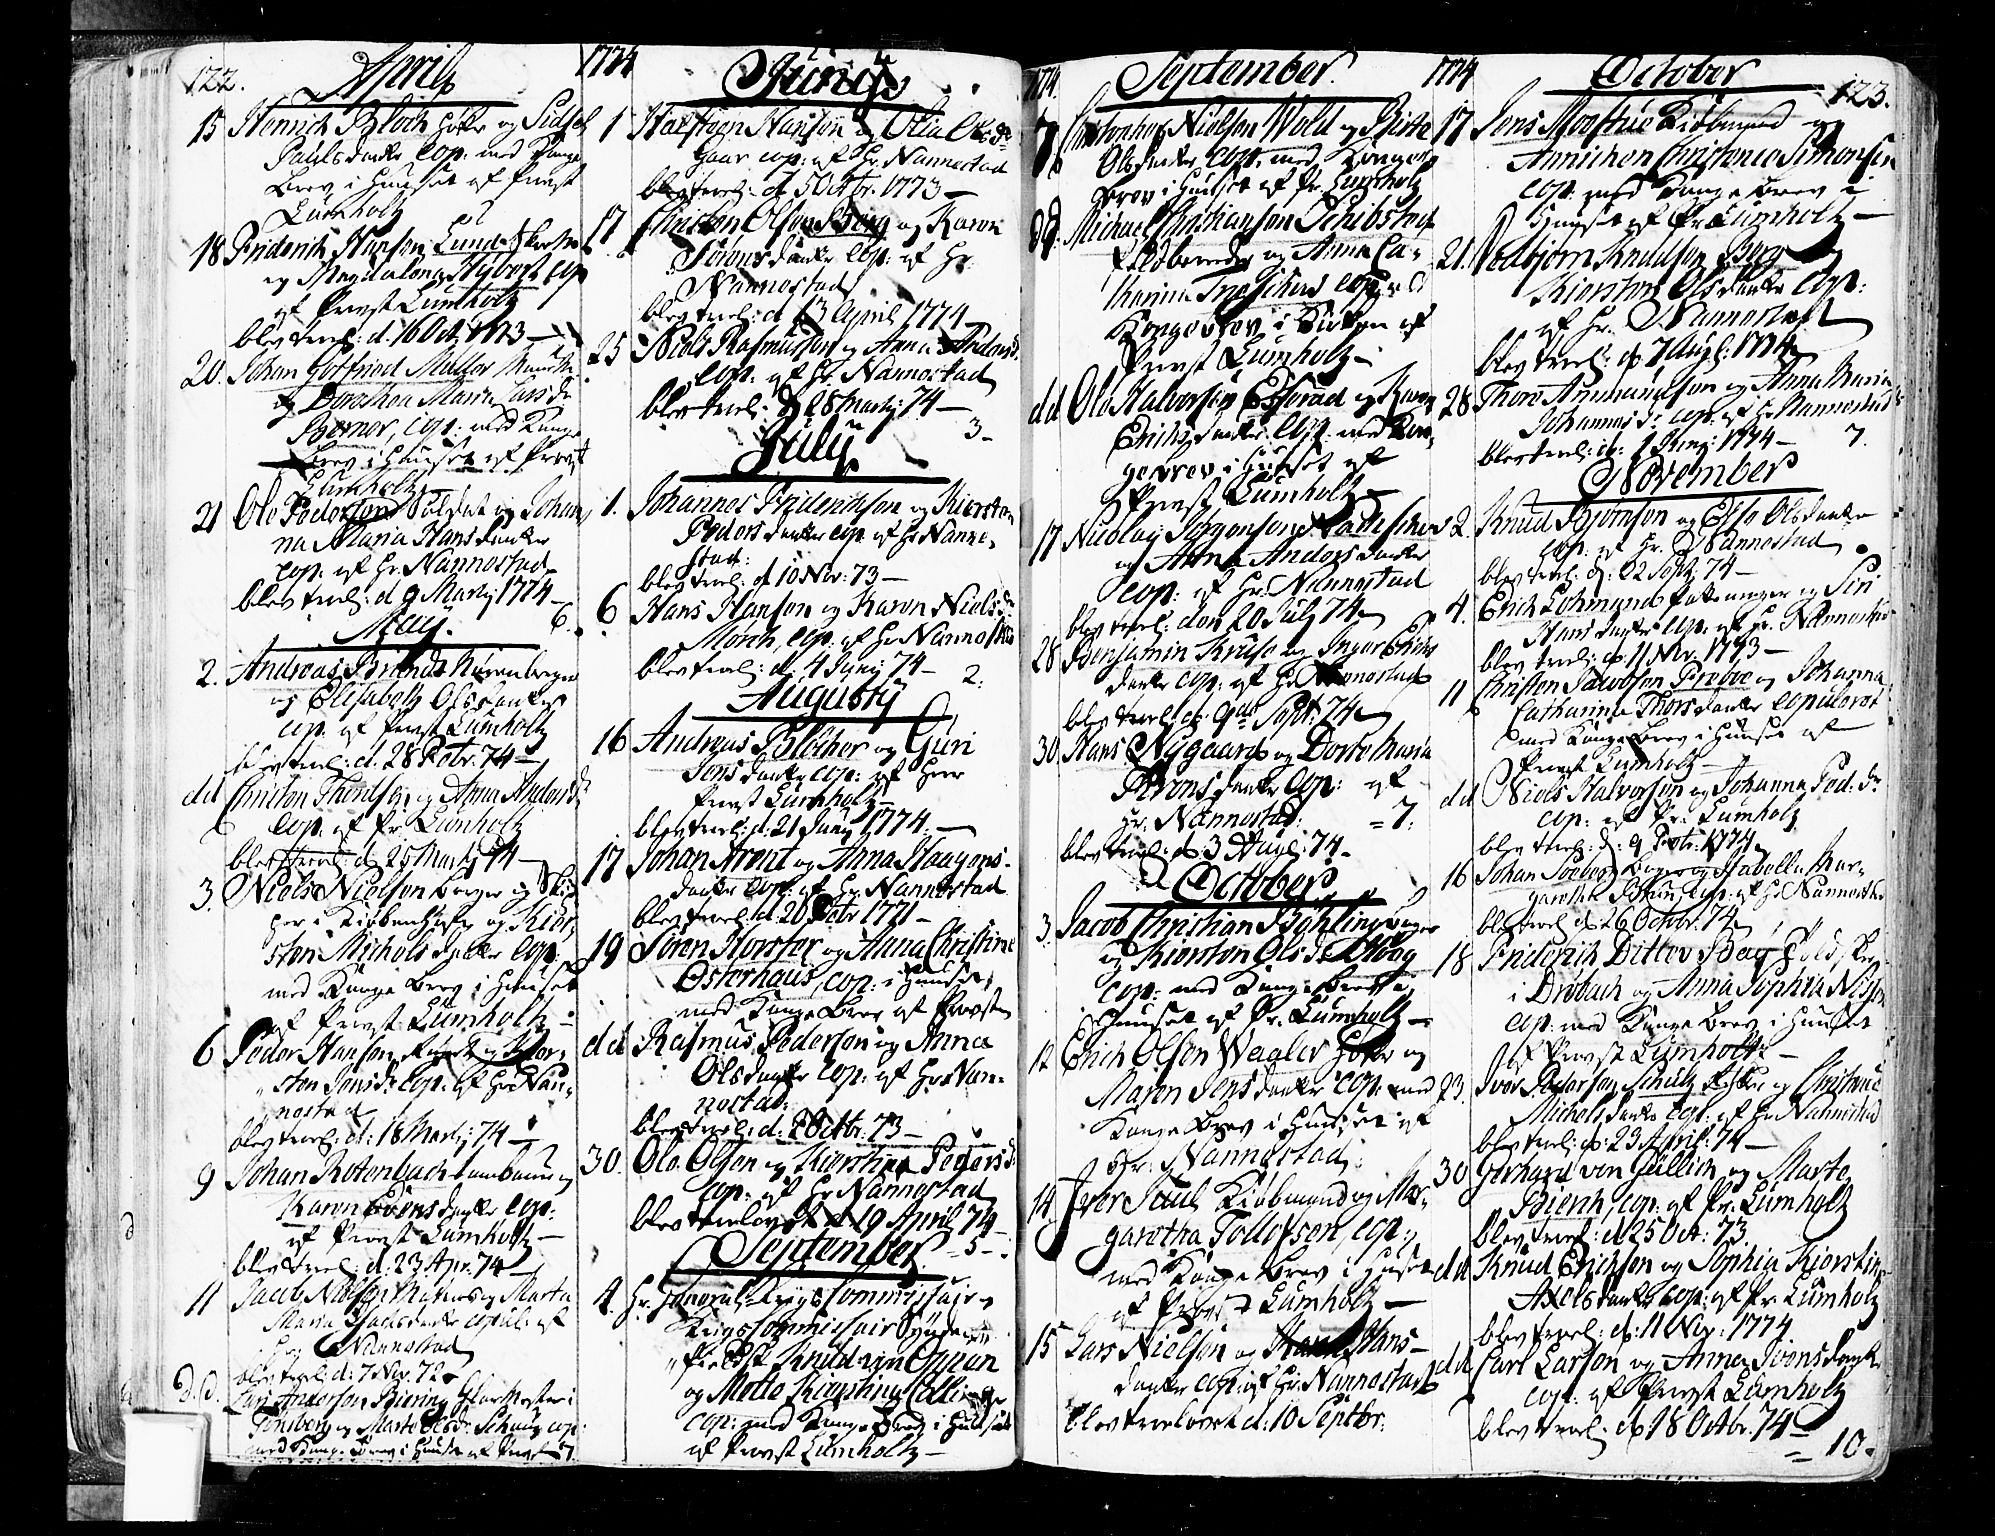 122. April
15 Henrich Bloch og Sidsel
Pauls cop: med Konge
Brev i Huuset af Provst
Lumholtz
18 Friderich Hansen Lund
og Magdalena Nyborg cop
af Provst Lumholtz
blev trol: d. 16 Oct 1773
20. Johan Gotfried Muller
og Dorothea Maria Larsdr
Berner, cop: med Konge
Brev i Huuset af Provst
Lumholtz
21 Ole Pedersen Soldat og Johan
na Maria Hansdatter
cop: af Hr. Nannestad
blev trol: d 9 Martj 1774
6.
May.
2. Andreas Brandt
og Elisabeth Olsdatter
cop. af Provst Lumholtz
blev trol: d. 28 Febr. 74
dd Christen og Anna Andersdr
Cop. af Pr. Lumholtz
blev trol: d 25 Martj 74
3. Niels Nielsen og
i og Kier
sten Michels datter cop:
med Konge Brev i Huuset
af Provst Lumholtz
6 Peder Hansen og Kier
sten Jensdr cop: af Hr Nan
nestad
blev trol: d: 18 Martj 74
9 Johan Rotenbach og
Karen datter cop:
af Provst Lumholtz
blev trol: d: 23 Apr. 74
11 Jacob Nielsen og Marta
Maria datter copul: af
Hr: Nannestad
blev trol: d: 7 Nov. 72
d.d. Lars Andersen Biering i
og Marte cop:
med Konge Brev i Huuset af Provst
1774
Junij
1 Halsteen Hansen og Olia
Gaar cop: af Hr. Nannestad
blev trol: d 5 Octbr. 1773
17 Christen Olsen Berg og Karen
Sørens datter cop: af Hr.
Nannestad
blev trol: d 13 April 1774
25 Niels Rasmussen og Anna
cop: af Hr. Nannestad
blev trol: d 28 Martj 74
3
July
1. Johannes Friderichsen og Kiersten
Peders datter cop. af Hr Nanne
stad:
blev trol: d 10 Nov: 73
6 Hans Hansen og Karen Nielsdr
Morch, cop: af Hr Nannestad
blev trol: d. 4 Junij 74
2:
Augustij
16 Andreas Blöcher og Guri
Jens datter cop: af Herr
Provst Lumholtz
blev trol: d: 21 Junij 1774.
17 Johan Arent og Anna Haagens
datter cop: af Hr. Nannestad
blev trol: d. 20 Febr 1771
19 Søren Horster og Anna Christine
Osterhaus, cop: i Huuset
med Konge Brev af Provst
dd Rasmus Pedersen og Anna
Olsdatter cop: af Hr Nan
nestad:
blev trol: d: 2 Octbr. 73
30. Ole Olsen og Kierstina Pedersd:
cop: af Hr Nannestad
blev trolovet d 19 April 74
5
September
9. Hr. General Krigs Commissair
Krigs Commissair
Knud van Oppen
og Mette Kierstine Collin
cop: med Konge Brev i Huuset
af Provst Lumholtz
1774. September.
7 Christopher Nielsen Wold og Birte
Olsdatter cop. med Konge
brev i Huuset af Pr. Lumholtz
dd. Michael Christiansen Schibsted
og Anna Ca
tharina cop: med
Kongebrev i Kirken af
Provst Lumholtz
dd Ole Halvorsen og Karen
Erichs datter cop: med Kon
gebrev i Huuset af
Provst Lumholtz
17 Nicolay Jørgensen
og Anna Anders datter
cop: af Hr. Nannestad
blev trol: den 20 July 74
28 Benjamin Kruse og Inger Erichs
datter cop: af Hr Nannestad
blev trol: d: 9de Sept: 74
30. Hans Nygaard og Dorte Maria
datter cop: af
Hr. Nannestad:
7:
blev trol: d: 3 Augl: 74
October
3. Jacob Christian Böhling
og Kiersten Olsdr Hoeg
cop: med Konge Brev
i Huuset af Pr. Lumholtz
12 Erich Olsen Waaler og
Maren Jens datter cop: med
Konge Brev i Huuset af
Hr: Nannestad
14. Iver Juul Kiøbmand og Mar
garetha Tollofsen, cop:
med Konge Brev i Huset
af Provst Lumholtz
15 Lars Nielsen og Hans
datter cop: af Hr: Nannestad
blev trolovet d: 10 Septbr:
1774 October 123.
17 Jens Moestue Kiøbmand og
Annichen Christence Simonsen
cop: med Konge Brev i
Huuset af Pr. Lumholtz
21. Vebjørn Knudsen Berg
Kiersten Olsdatter cop:
af Hr. Nannestad
blev trol: d: 7 Augl: 1774
28 Thore Ammundsen og Anna Maria
Johannes dr. cop: af Hr Nannestad
blev trol: d: 1 Junij 1774
7.
November
2. Knud Bjørnsen og Else Olsdatter
cop: af Hr. Nannestad
blev trol: d: 22 Septbr 74
4. Erich Lohmand og Siri
Hans datter cop: af Hr. Nannestad
blev trol: d: 11 Nov. 1773
11 Christen Jacobsen Preboe og Johanna
Catharina Thorsdatter copuleret
med Konge Brev i Huuset af
Provst Lumholtz
dd Niels Halvorsen og Johanna Ped: dr
cop: af Pr: Lumholtz
blev trol: d: 9 Febr: 1774
16 Johan og Isabella Mar
garetha Brun, cop: af Hr Nannestad
blev trol d: 26 Octbr. 74
18 Friderich Ditlev Bay
i Drøbach og Anna Sophia
cop: med Konge Brev i Huuset
af Provst Lumholtz
23. Iver Pedersen Schultz og Christence
Michels datter cop. af Hr Nannestad
blev trol: d: 23 April: 74
30 Gerhard von Güllich og Marte
Bienk, cop: af Pr: Lumholtz
blev trol: d 25 Oct: 73.
dd Knud Erichsen og Sophia Kierstine
Axelsdatter cop: af Pr. Lumholtz
blev trol: d: 11 Nov: 1774
dd Carl Larsen og Anna Ivers datter
cop: af Provst Lumholtz
blev trol: d 18 Octbr. 74
10.